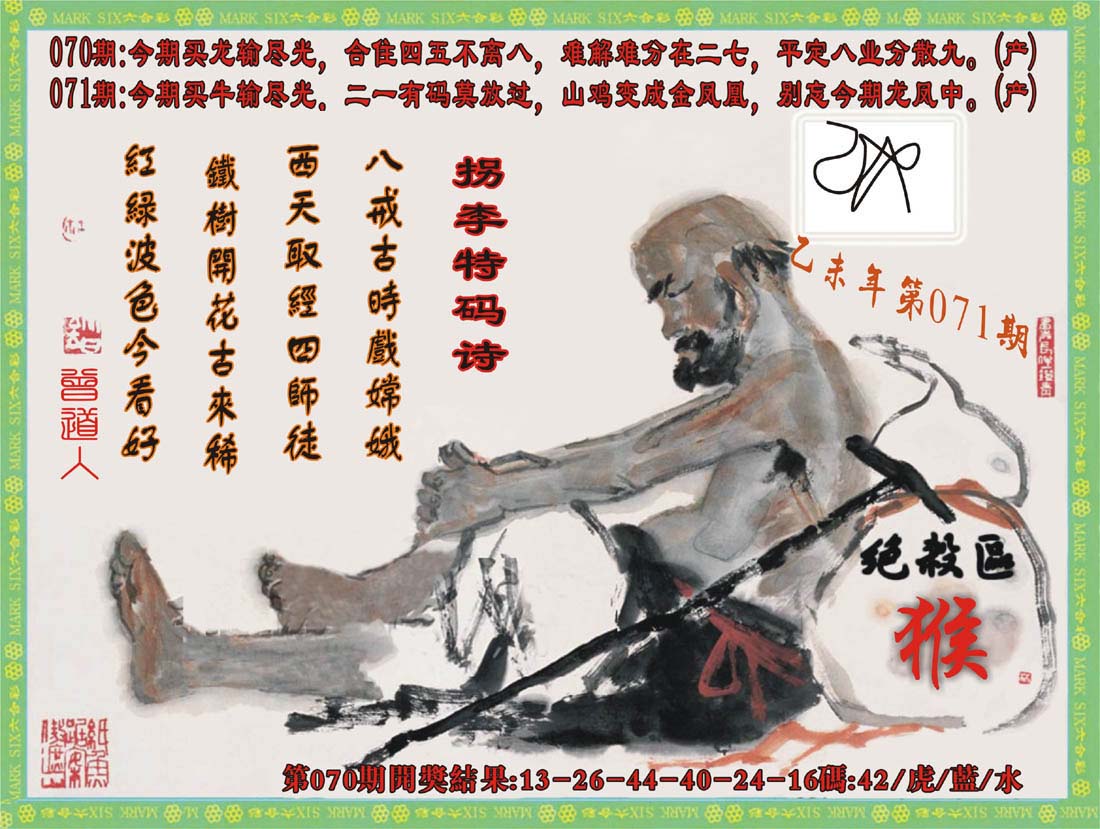 MARK SIX六合彩
070期:今期买龙输尽光，合住四五不离八，难解难分在二七，平定八业分散九。(产)
071期:今期买牛输尽光．二一有码莫放过，山鸡变成金凤凰，别忘今期龙凤中。(产)
拐李特码诗
八戒古時戲嫦娥
西天取經四師徒
鐵樹開花古來稀
紅綠波色今看好
曾道人
乙未年第071期
绝殺區
猴
第070期開獎結果:13-26-44-40-24-16碼:42/虎/藍/水